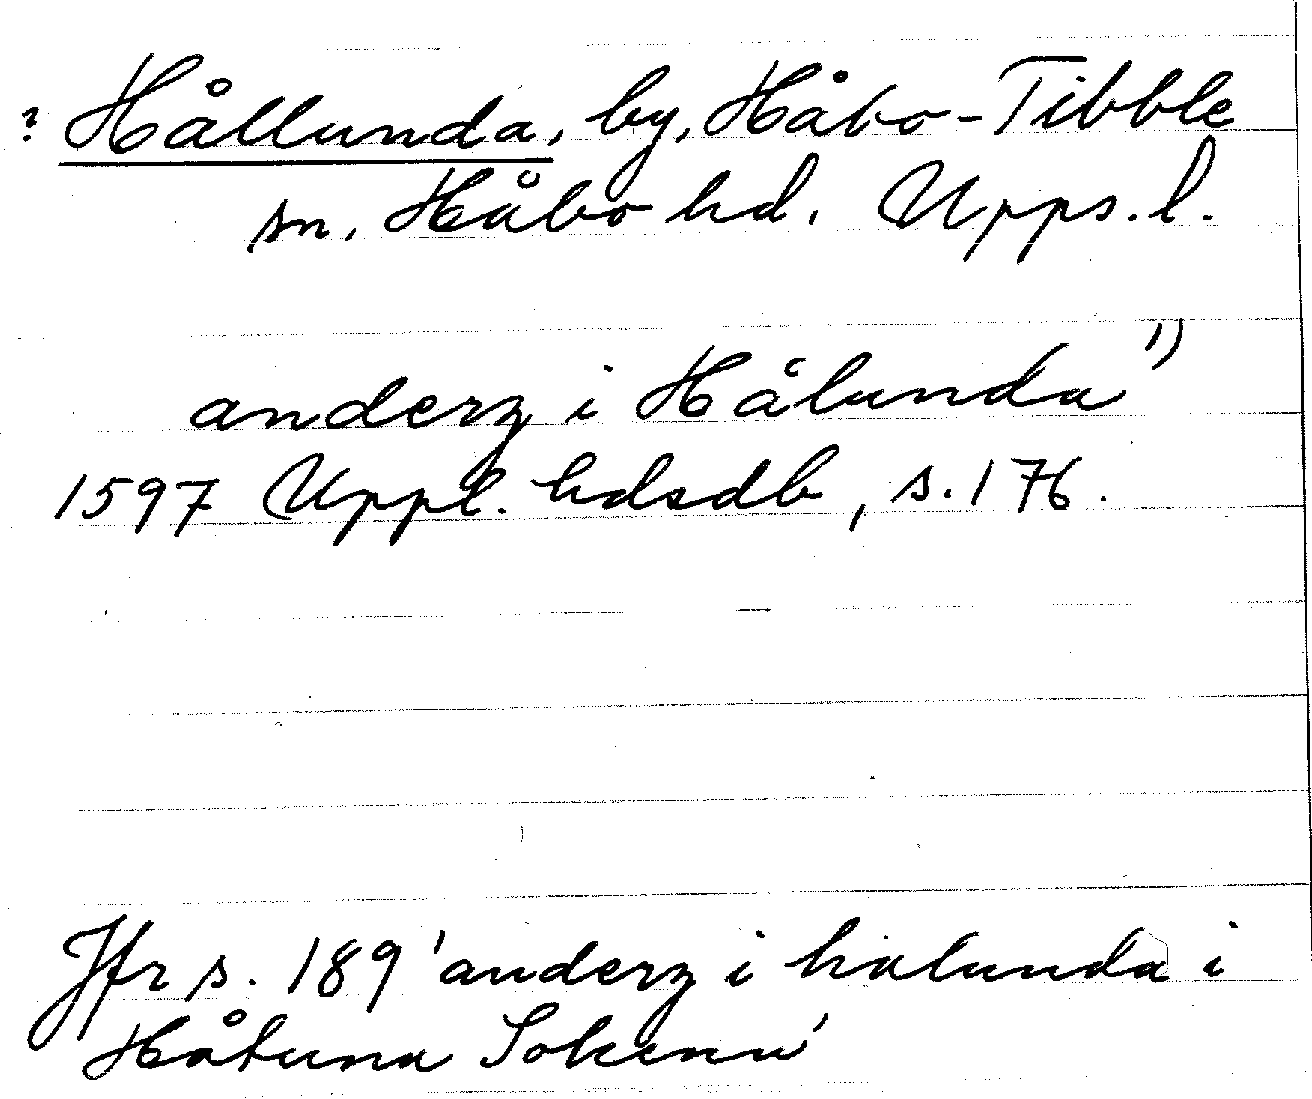 ? Hållunda, by, Håbo-Tibble
sn, Håbo hd. Upps. l.
anderz i Hålunda 1)
1597 Uppl. hdsdb, s. 176.
Jfr s. 189 'anderz i halunda i
Håtuna Sokenn'